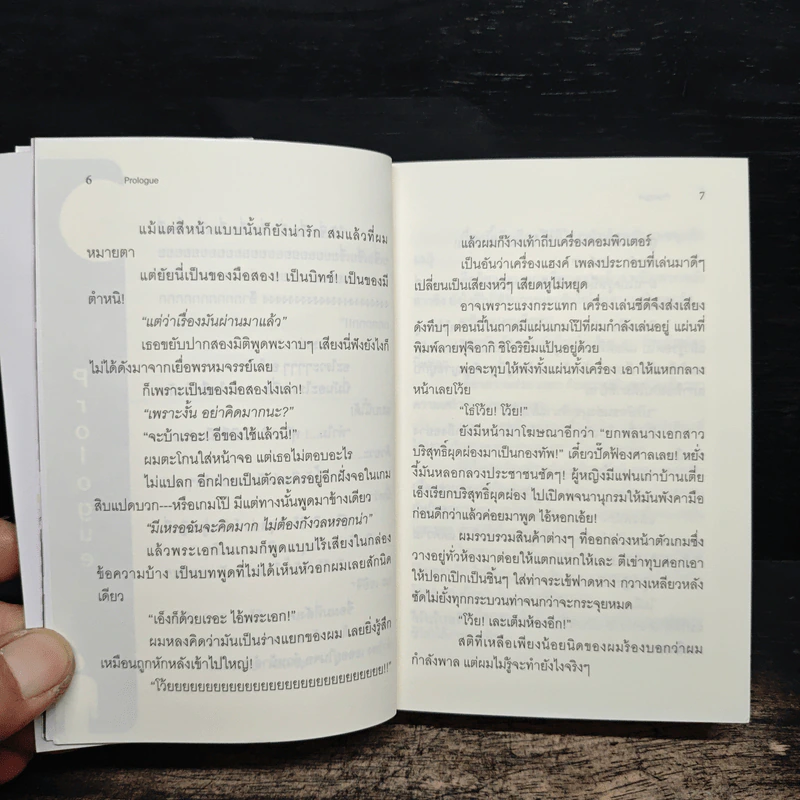 6 Prologue
แม้แต่สีหน้าแบบนั้นก็ยังน่ารัก สมแล้วที่ผม
หมายตา
แต่ยัยนี่เป็นของมือสอง! เป็นบิทช์! เป็นของมี
ตำหนิ!
“แต่ว่าเรื่องมันผ่านมาแล้ว”
เธอขยับปากสองมิติพูดพะงาบๆ เสียงนี่ฟังยังไงก็
ไม่ได้ดังมาจากเยื่อพรหมจรรย์เลย
ก็เพราะเป็นของมือสองไงเล่า!
“เพราะงั้น อย่าคิดมากนะ?”
“จะบ้าเรอะ! อีของใช้แล้วนี่!”
ผมตะโกนใส่หน้าจอ แต่เธอไม่ตอบอะไร
ไม่แปลก อีกฝ่ายเป็นตัวละครอยู่อีกฝั่งจอในเกม
สิบแปดบวก---หรือเกมโป๊ มีแต่ทางนั้นพูดมาข้างเดียว
“มีเหรอฉันจะคิดมาก ไม่ต้องกังวลหรอกน่า”
แล้วพระเอกในเกมก็พูดแบบไร้เสียงในกล่อง
ข้อความบ้าง เป็นบทพูดที่ไม่ได้เห็นหัวอกผมเลยสักนิด
เดียว
“เอ็งก็ด้วยเรอะ ไอ้พระเอก!”
ผมหลงคิดว่ามันเป็นร่างแยกของผม เลยยิ่งรู้สึก
เหมือนถูกหักหลังเข้าไปใหญ่!
“โว้ยยยยยยยยยยยยยยยยยยยยยยยยยยยยย!!”
Prologue
7
แล้วผมก็ง้างเท้าถีบเครื่องคอมพิวเตอร์
เป็นอันว่าเครื่องแฮงค์ เพลงประกอบที่เล่นมาดีๆ
เปลี่ยนเป็นเสียงหวี่ๆ เสียดหูไม่หยุด
อาจเพราะแรงกระแทก เครื่องเล่นซีดีจึงส่งเสียง
ดังทึบๆ ตอนนี้ในถาดมีแผ่นเกมโป๊ที่ผมกำลังเล่นอยู่ แผ่นที่
พิมพ์ลายฟุจิอากิ ชิโอริยิ้มแป้นอยู่ด้วย
พ่อจะทุบให้พังทั้งแผ่นทั้งเครื่อง เอาให้แหกกลาง
หน้าเลยโว้ย
“โธ่โว้ย! โว้ย!”
ยังมีหน้ามาโฆษณาอีกว่า “ยกพลนางเอกสาว
บริสุทธิ์ผุดผ่องมาเป็นกองทัพ!” เดี๋ยวปั๊ดฟ้องศาลเลย! หยั่ง
งี้มันหลอกลวงประชาชนชัดๆ! ผู้หญิงมีแฟนเก่าบ้านเตี่ย
เอ็งเรียกบริสุทธิ์ผุดผ่อง ไปเปิดพจนานุกรมให้มันพังคามือ
ก่อนดีกว่าแล้วค่อยมาพูด ไอ้หอกเอ้ย!
ผมรวบรวมสินค้าต่างๆ ที่ออกล่วงหน้าตัวเกมซึ่ง
วางอยู่ทั่วห้องมาต่อยให้แตกแหกให้เละ ตีเข่าทุบศอกเอา
ให้ปอกเปิกเป็นชิ้นๆ ใส่ท่าจระเข้ฟาดหาง กวางเหลียวหลัง
ซัดไม่ยั้งทุกกระบวนท่าจนกว่าจะกระจุยหมด
“โว้ย! เละเต็มห้องอีก!”
สติที่เหลือเพียงน้อยนิดของผมร้องบอกว่าผม
กำลังพาล แต่ผมไม่รู้จะทำยังไงจริงๆ